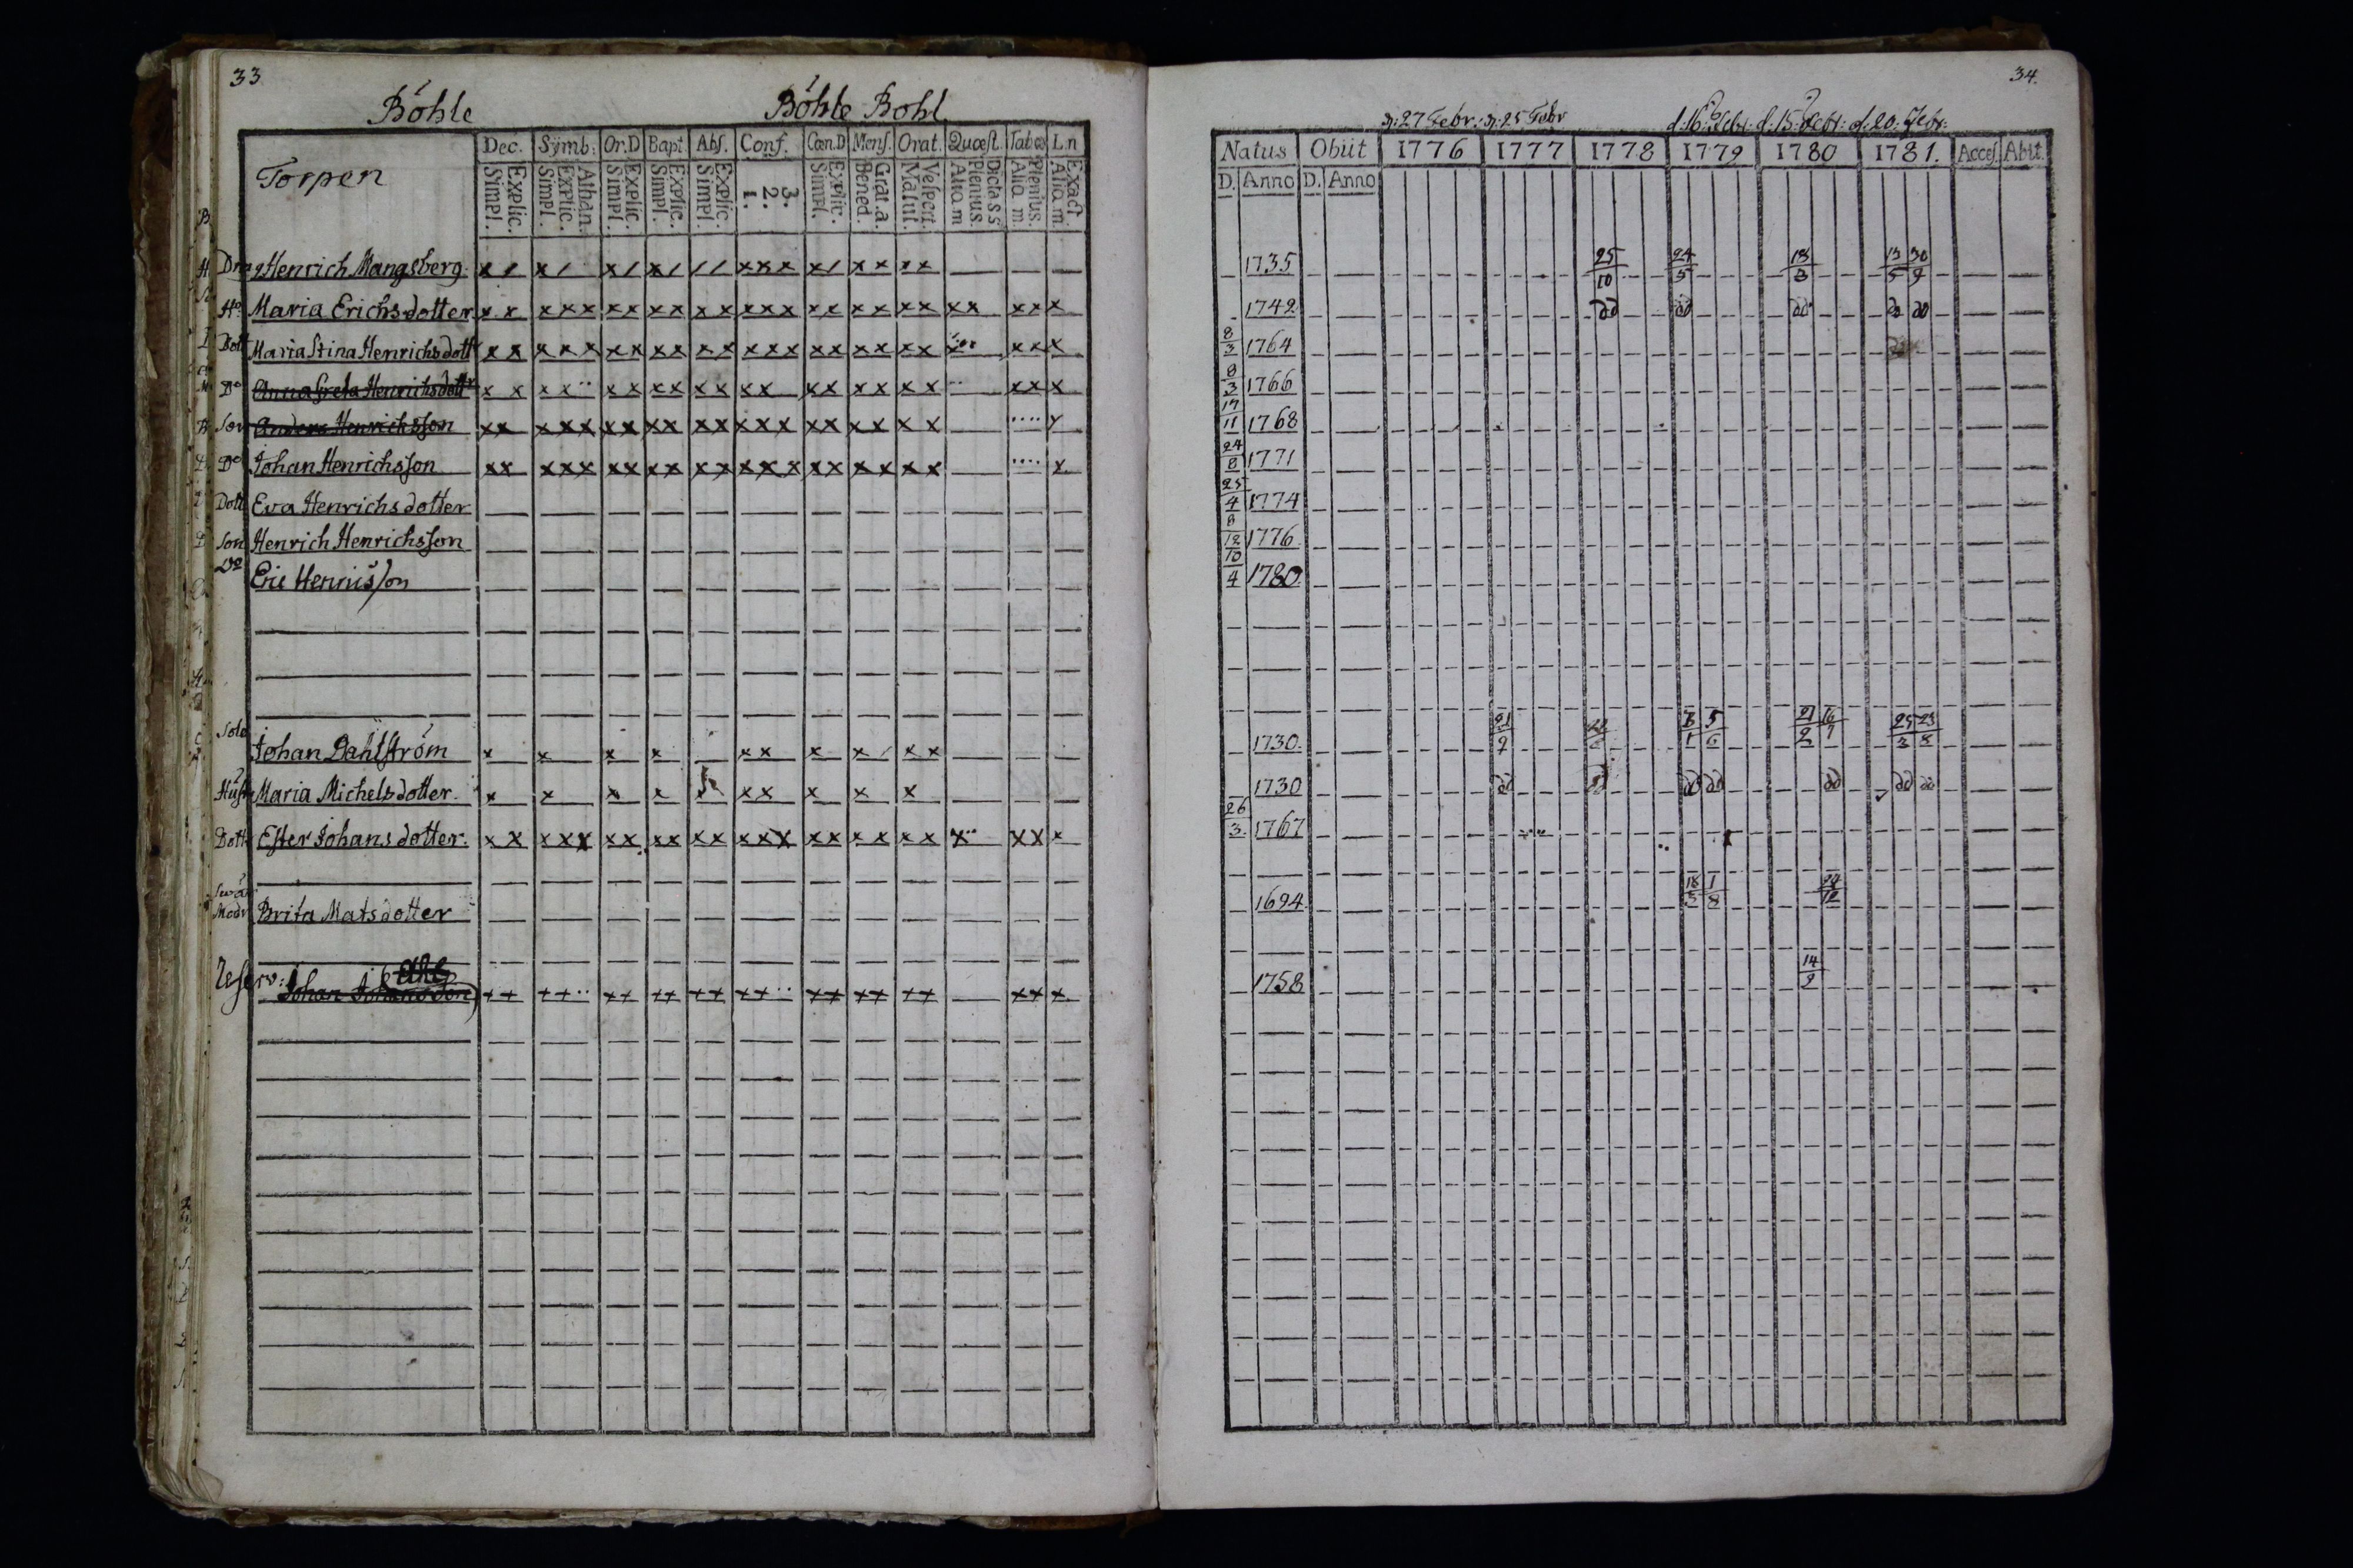 33
Böhle Böhle Bohl
Torpen Dec. Symb: Or.D Bapt. Abs. Conf. Cœn.D Mens. Orat. Quœst. Tabœ L.n
Simpl. Explic. Simpl. Explic. Athan. Simpl. Explic. Simpl. Explic. Simpl. Explic. 1. 2. 3. Simpl. Explic. Bened. Grat.a. Matut. Vespert. Aliq.m Plenius. Dicta s.s. Aliq.m Plenius. Aliq.m. Exact
Henrich Mangsberg. x / x / x / x / / / x x x x / x x x x
Ho Maria Erichsdotter x x x x x x x x x x x x x x x x x x x x x x x x x x
Dott Maria Stina Henrichsdott x x x x x x x x x x x x x x x x x x x x x x x
Do Anna Greta Henrichsdott x x x x x x x x x x x x x x x x x x x x x
Son Anders Henrichsson x x x x x x x x x x x x x x x x x x x x
Do Johan Henrichsson x x x x x x x x x x x x x x x x x x x x x
Dott Eva Henrichsdotter
Son Henrich Henrichsson
Do Eric Henricsson
Sold Johan Dahlström x x x x x x x x / x x
Hust Maria Michelsdotter. x x x x x x x x x
Dott Ester Johansdotter. x x x x x x x x x x x x x x x x x x x x x x x x
Swär Modr Brita Matsdotter
Reserv: Johan Johansson x x x x x x x x x x x x x x x x x x x x x
34.
d: 27 Febr: d: 25 Febr d: 16: Febr: d: 15: Febr: d: 20: Febr:
Natus Obiit 1776 1777 1778 1779 1780 1781. Acces. Abit.
D. Anno D. Anno
1735 25/10 24/5 18/3 13/5 30/9
1742 do do do do do
8/3 1764
8/3 1766
17/11 1768
24/8 1771
25/4 1774
8/12 1776
10/4 1780
1730. 21/9 5/6 21/2 25/3 23/8
1730 do do do do do do do
26/3. 1767
1694 18/3 1/8
1758 14/9